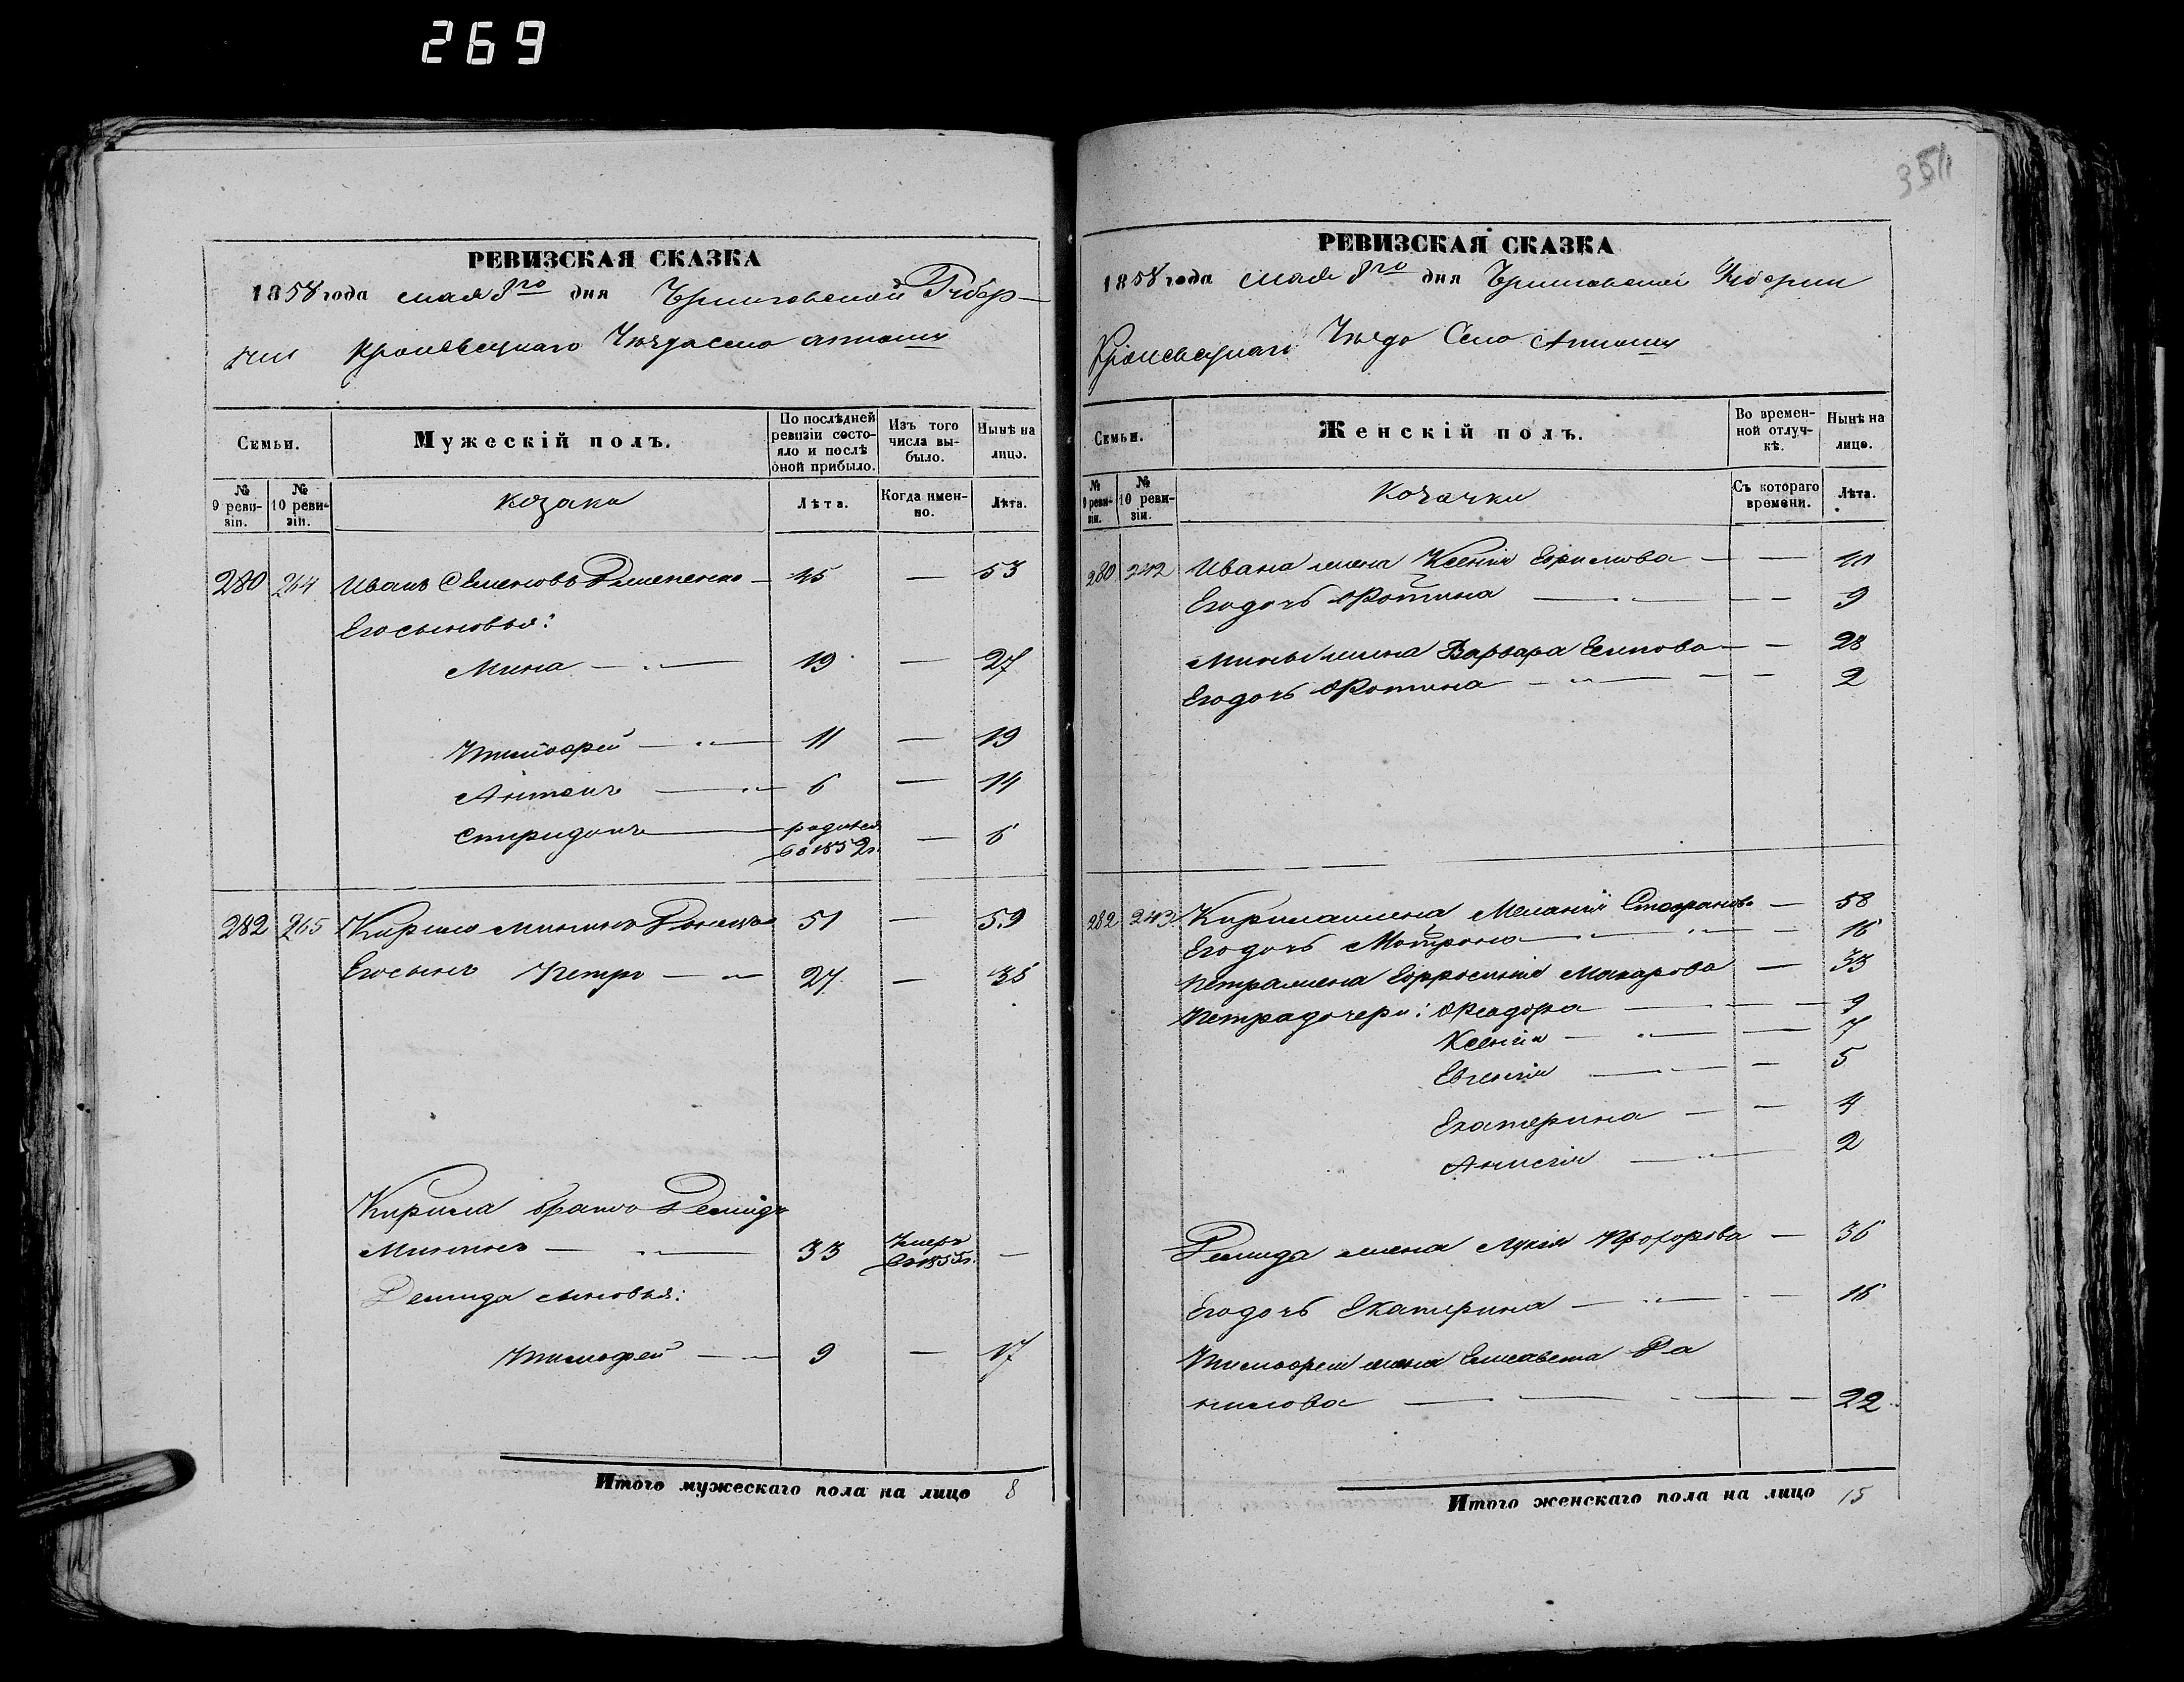 269
354
РЕВИЗСКАЯ СКАЗКА
1858 года мая 8го дня Черниговской Губер-
нии Кролевецкаго Уезда село
Семьи.
Мужескій полъ.
По послѣдней ревизіи состояло и послѣ оной прибыло.
Изъ того числа выбыло.
Нынѣ на лицо.
№ 9 ревизіи.
№ 10 ревизіи.
козаки
Лѣта.
Когда именно.
Лѣта.
280 264 Иванъ Семеновъ — 45 — 53
Его сыновья:
Мина — 19 — 27
Тимофей — 11 — 19
Антонъ — 6 — 14
Спиридонъ — родился въ 1852г. — 6
282 265 Кирило Мининъ 51 — 59
Его сынъ Петро — 27 — 35
Кирила братъ Демидъ
Мининъ — 33 Умеръ въ 1855г. —
Демида сыновья:
Тимофей — 9 — 17
Итого мужескаго пола на лицо 8
РЕВИЗСКАЯ СКАЗКА
1858 года мая 8го дня Черниговской Губернии
Кролевецкаго Уезда Село
Семьи.
Женскій полъ.
Во временной отлучкѣ.
Нынѣ на лицо.
№ 9 ревизіи.
№ 10 ревизіи.
Козачки
Съ котораго времени.
Лѣта.
280 242 Ивана жена Ксенія Ефимова — —
Его дочь Фотина — — 9
Мины жена Варвара — — 28
Его дочь Фотина — — 2
282 243 Кирила жена Меланія Стефанова — 58
Его дочь Мотрона — — 16
Петра жена Ефросинія Макарова — 33
Петра дочери: Феодора — — 9
Ксенія — — 7
Евгенія — — 5
Екатерина — — 4
Анисія — 2
Демида жена Лукія Прохорова — 36
Его дочь Екатерина — — 16
Тимофея жена Елисавета Да
нилова — — 22
Итого женскаго пола на лицо 15